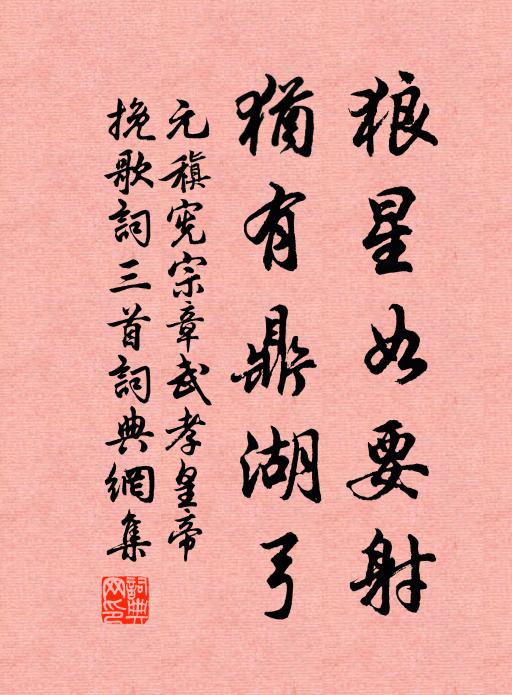 狼星如要射
猶有鼎湖弓
元稹宪宗章武孝皇帝
挽歌詞三首詞典網集
詞典網印